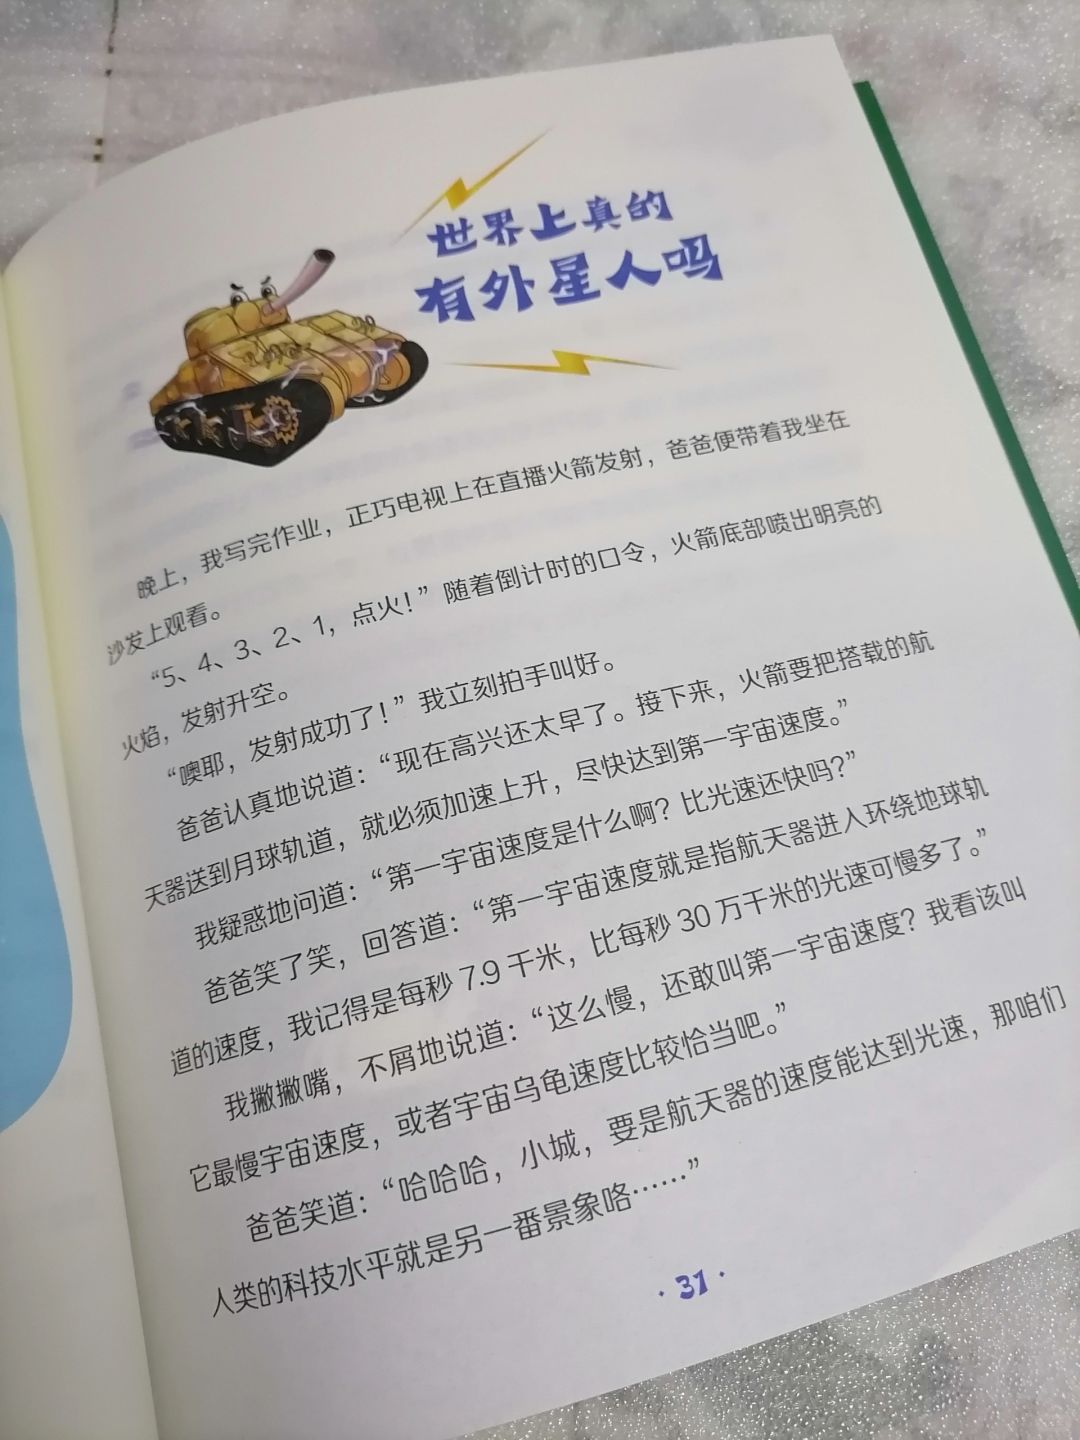 世界上真的
有外星人吗
晚上，我写完作业，正巧电视上在直播火箭发射，爸爸便带着我坐在
沙发上观看。
“5、4、3、2、1，点火！”随着倒计时的口令，火箭底部喷出明亮的
火焰，发射升空。
“噢耶，发射成功了！”我立刻拍手叫好。
爸爸认真地说道：“现在高兴还太早了。接下来，火箭要把搭载的航
天器送到月球轨道，就必须加速上升，尽快达到第一宇宙速度。”
我疑惑地问道：“第一宇宙速度是什么啊？比光速还快吗？”
爸爸笑了笑，回答道：“第一宇宙速度就是指航天器进入环绕地球轨
道的速度，我记得是每秒7.9千米，比每秒30万千米的光速可慢多了。”
我撇撇嘴，不屑地说道：“这么慢，还敢叫第一宇宙速度？我看该叫
它最慢宇宙速度，或者宇宙乌龟速度比较恰当吧。”
爸爸笑道：“哈哈哈，小城，要是航天器的速度能达到光速，那咱们
人类的科技水平就是另一番景象咯……”
·31·